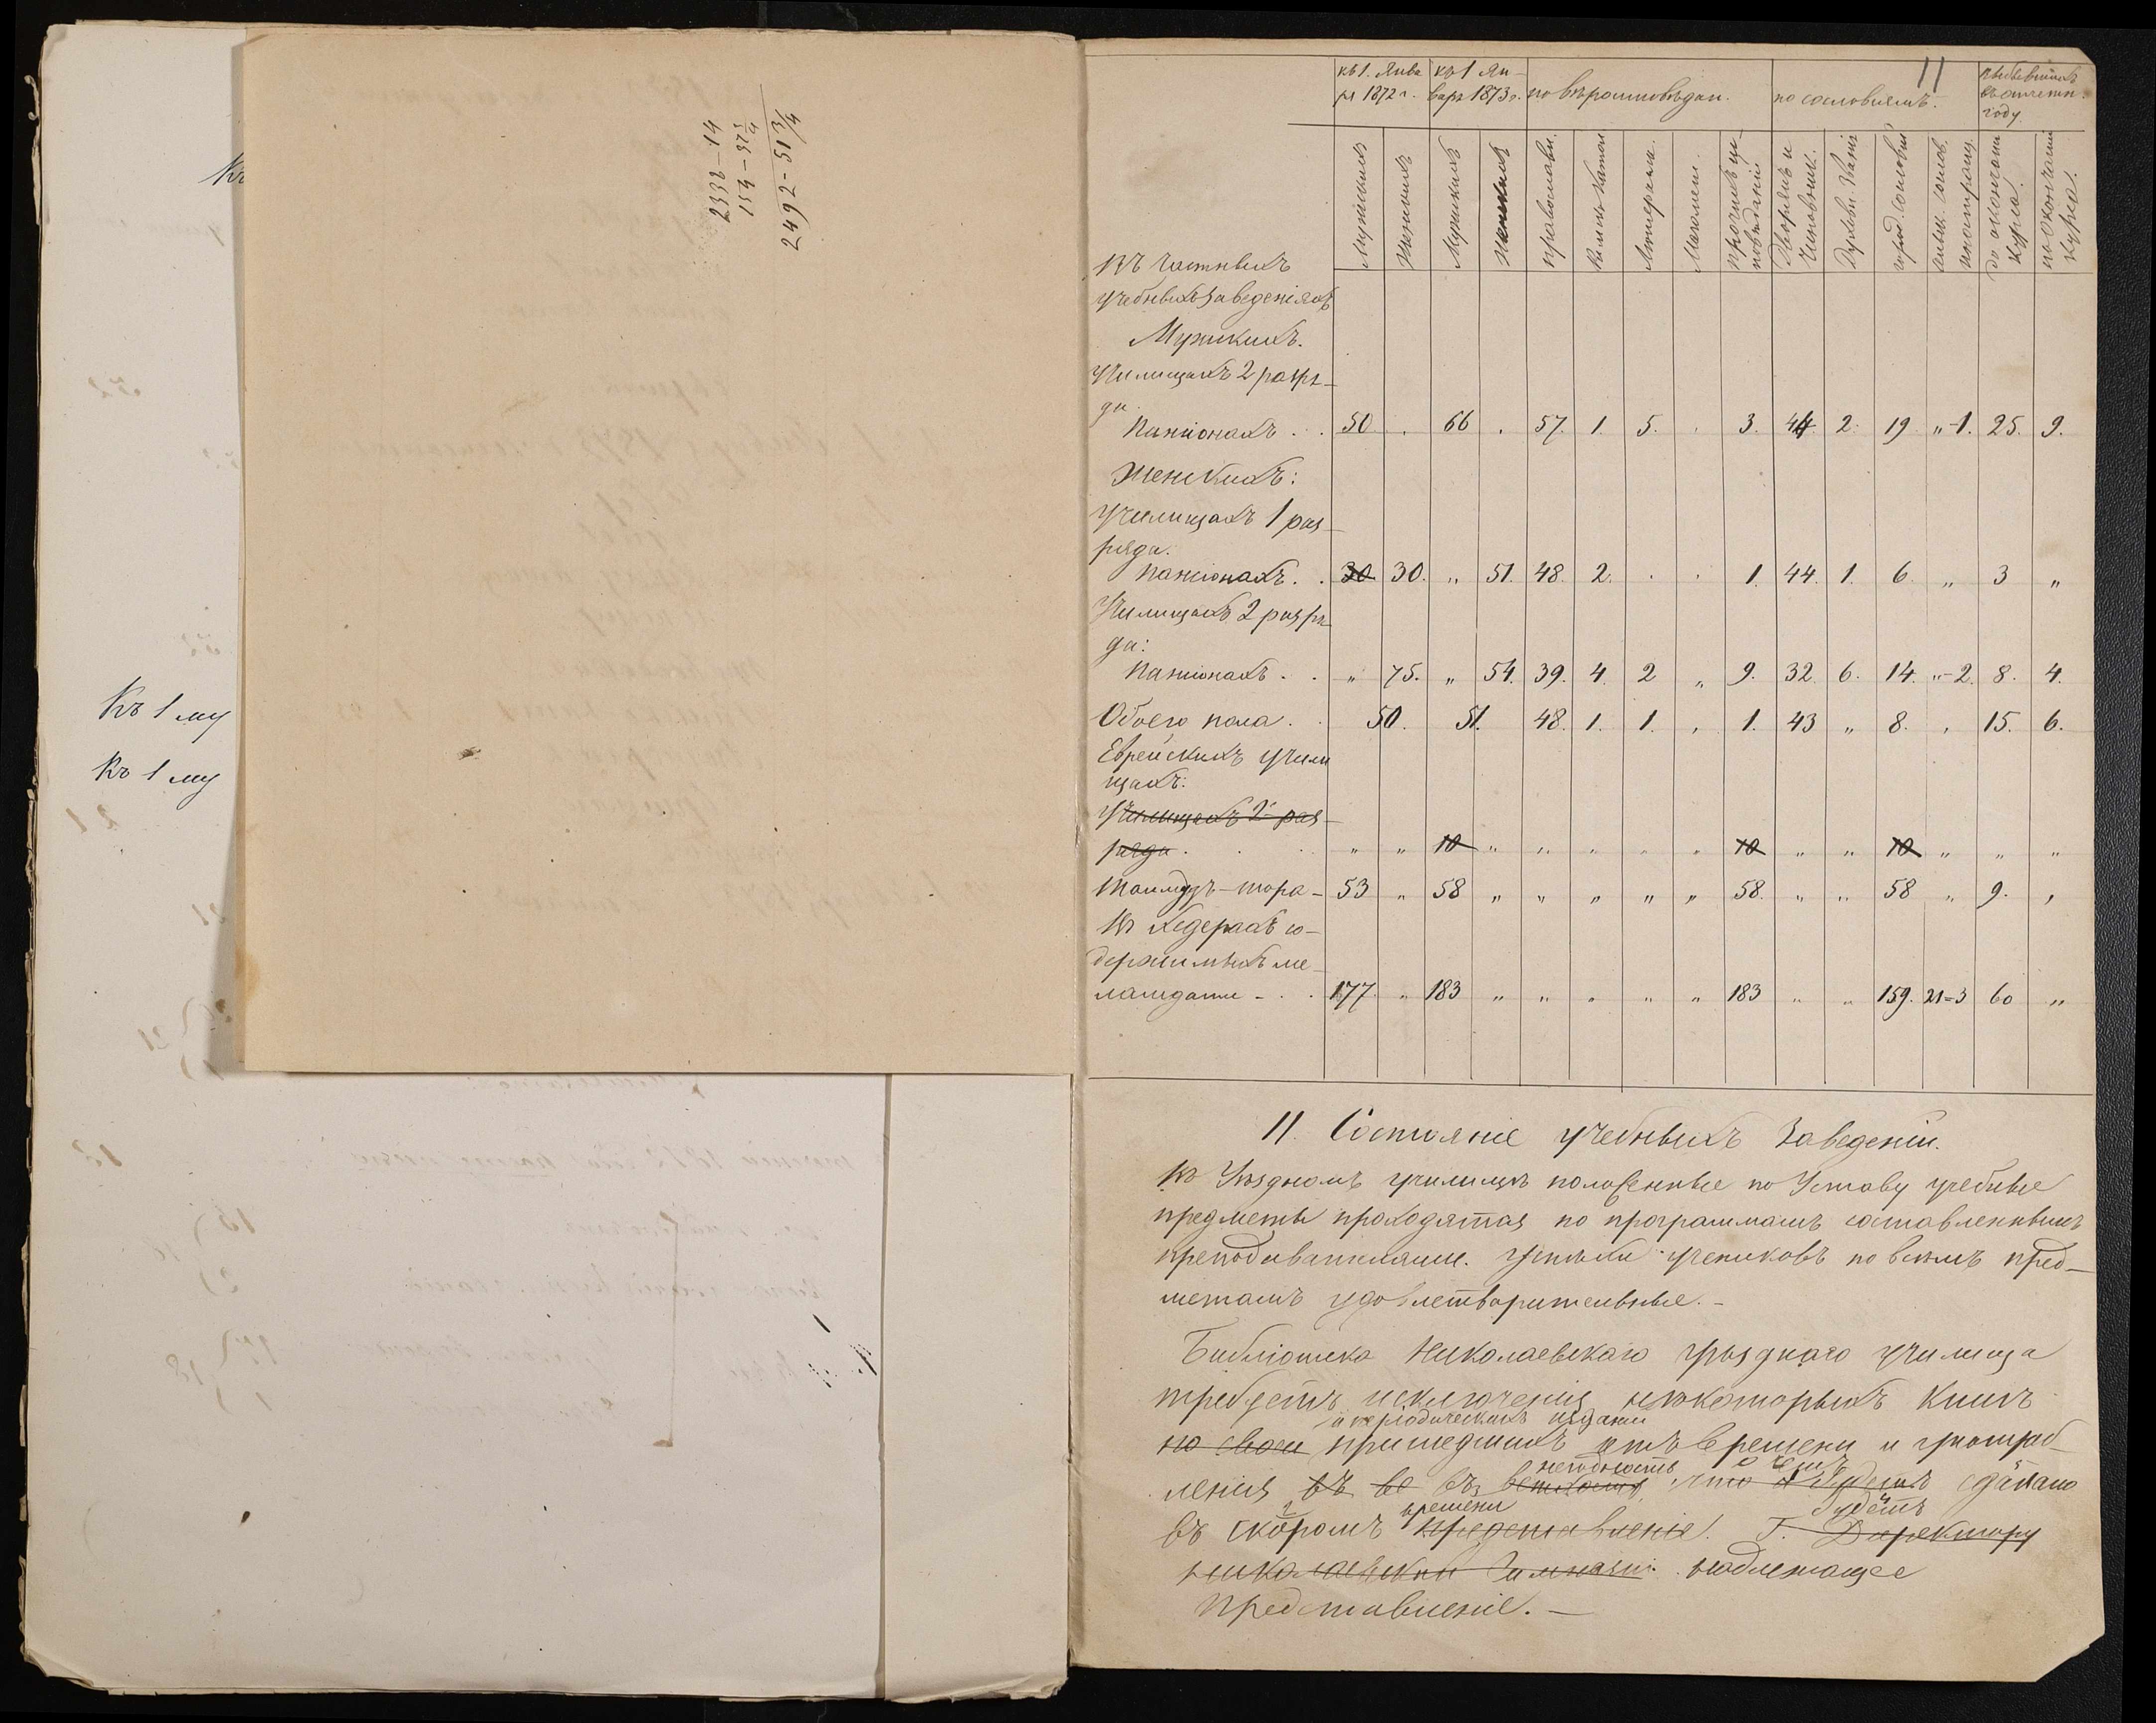 Къ
Къ 1 му
Къ 1 му
2338-14
154-37 3/4
2492-51 3/4
11
къ 1. Янва къ 1 Ян- по вѣроисповѣдан. по сословіямъ. выбывшихъ
ря 1872 г. варя 1873 г. въ отчетн.
году.
Мужчинъ Женщинъ Мужчинъ Женщинъ православн. Римско Катол Лютеранъ. Магомет. прочихъ ис-повѣданій Дворянъ и Чиновник. Духовн. Званія город. Сословія иностранц. до окончанія курса. по окончаніи курса.
Въ частныхъ
учебныхъ Заведеніяхъ
Мужскихъ.
Училищахъ 2 разря-
да.
Пансіонахъ . . 50 . 66 . 57. 1. 5. . 3. 44. 2. 19 „-1. 25. 9.
Женскихъ:
Училищахъ 1 раз-
ряда.
Пансіонахъ. . 30 30. „ 51. 48. 2. . . 1. 44. 1. 6. „ 3 „
Училищахъ 2 разря
да:
Пансіонахъ . . „ 75. „ 54. 39. 4. 2 „ 9. 32. 6. 14. „-2. 8. 4.
Обоего пола . . 50. 51. 48. 1. 1. „ 1. 43 „ 8. „ 15. 6.
Еврейскихъ учили
щахъ:
Училищахъ 2 раз-
ряда . . . „ „ 10 „ „ „ „ „ 10 „ „ 10 „ „ „
Талмудъ-тора - 53 „ 58 „ „ „ „ „ 58. „ „ 58 „ 9. „
Въ Хедерахъ со-
держимыхъ ме-
ламдами - . . 177. „ 183 „ „ „ „ „ 183 „ „ 159. 21=3 60 „
II. Состояніе учебныхъ Заведеній.
Въ Уѣздномъ училищѣ положенные по Уставу учебные
предметы проходятся по программамъ составленнымъ
преподавателями. Успѣхи учениковъ по всѣмъ пред-
метамъ удовлетворительные.-
Библіотека Николаевскаго уѣзднаго училища
требуетъ исключенія нѣкоторыхъ книгъ
и періодическихъ изданій
по своей пришедшихъ отъ времени и употреб-
негодность о чемъ
ленія въ ве въ ветхость, что и будетъ сдѣлано
времени будетъ
въ скоромъ представленіе. Г. Директору
Николаевской Гимназіи. надлежащее
представленіе.-